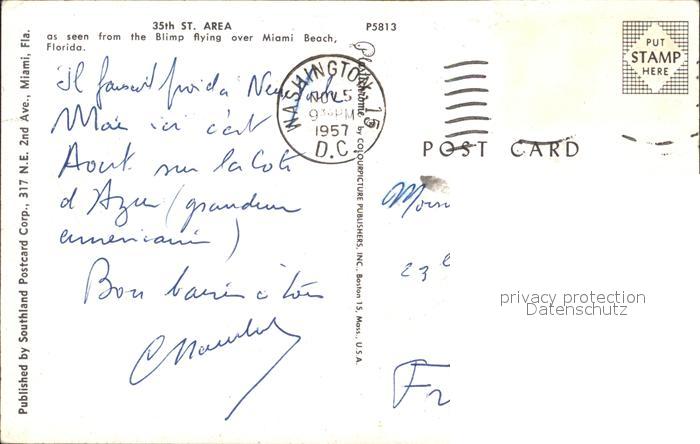 35th ST. AREA
as seen from the Blimp flying over Miami Beach,
Florida.
P5813
Published by Southland Postcard Corp., 317 N.E. 2nd Ave., Miami, Fla.
Il faisait froid à New
Mais ici c'est
Aout sur la Cote
d'Azur (grandeur
americaine)
Bon baiser à tous
WASHINGTON, 15
NOV 5
9 PM
1957
D.C.
Plastichrome by COLOURPICTURE PUBLISHERS, INC., Boston 15, Mass., U.S.A.
PUT
STAMP
HERE
POST CARD
23
Fr
privacy protection
Datenschutz